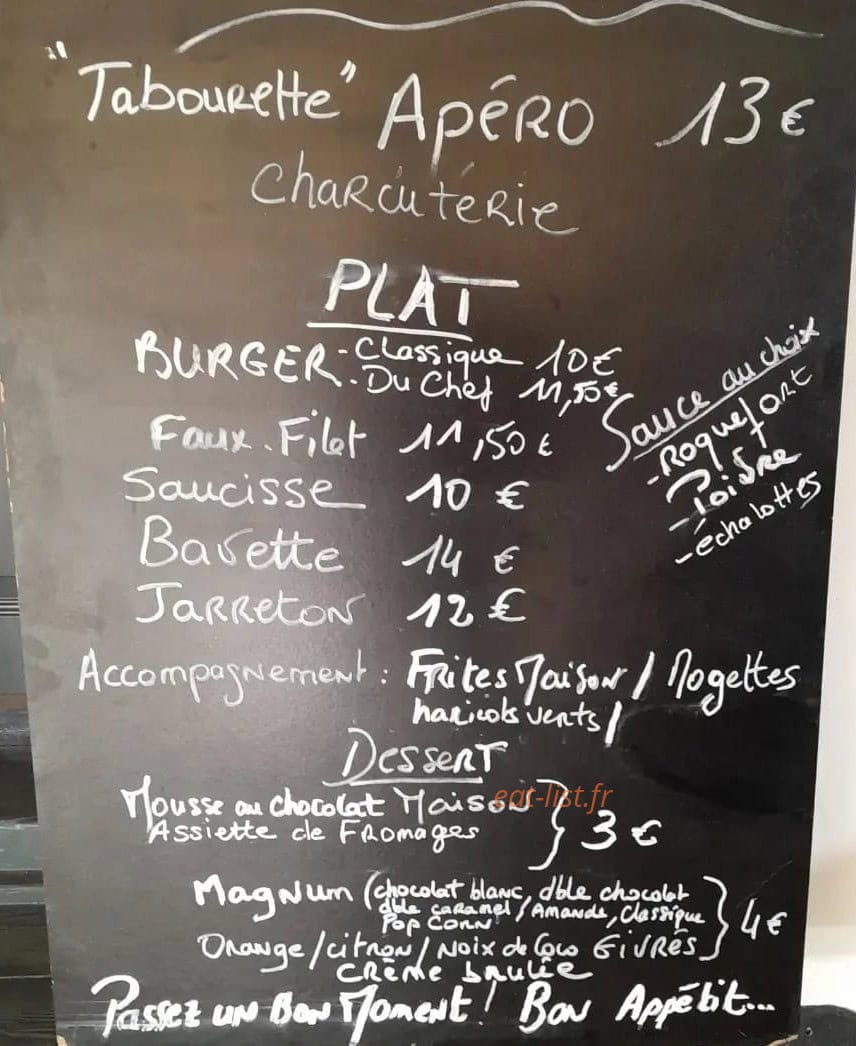 "Tabourette" Apéro 13 €
Charcuterie
PLAT
BURGER - Classique 10 €
- Du Chef 11,50 €
Faux-Filet 11,50 €
Saucisse 10 €
Bavette 14 €
Jarreton 12 €
Sauce au choix
- Roquefort
- Poivre
- échalottes
Accompagnement : Frites Maison / Mogettes
haricots verts /
Dessert
Mousse au chocolat Maison
Assiette de Fromages } 3 €
eat-list.fr
Magnum (chocolat blanc, dble chocolat
dble caramel / Amande, Classique
Pop Corn
Orange / citron / Noix de Coco Givrés } 4 €
Crème brulée
Passez un Bon Moment ! Bon Appétit...